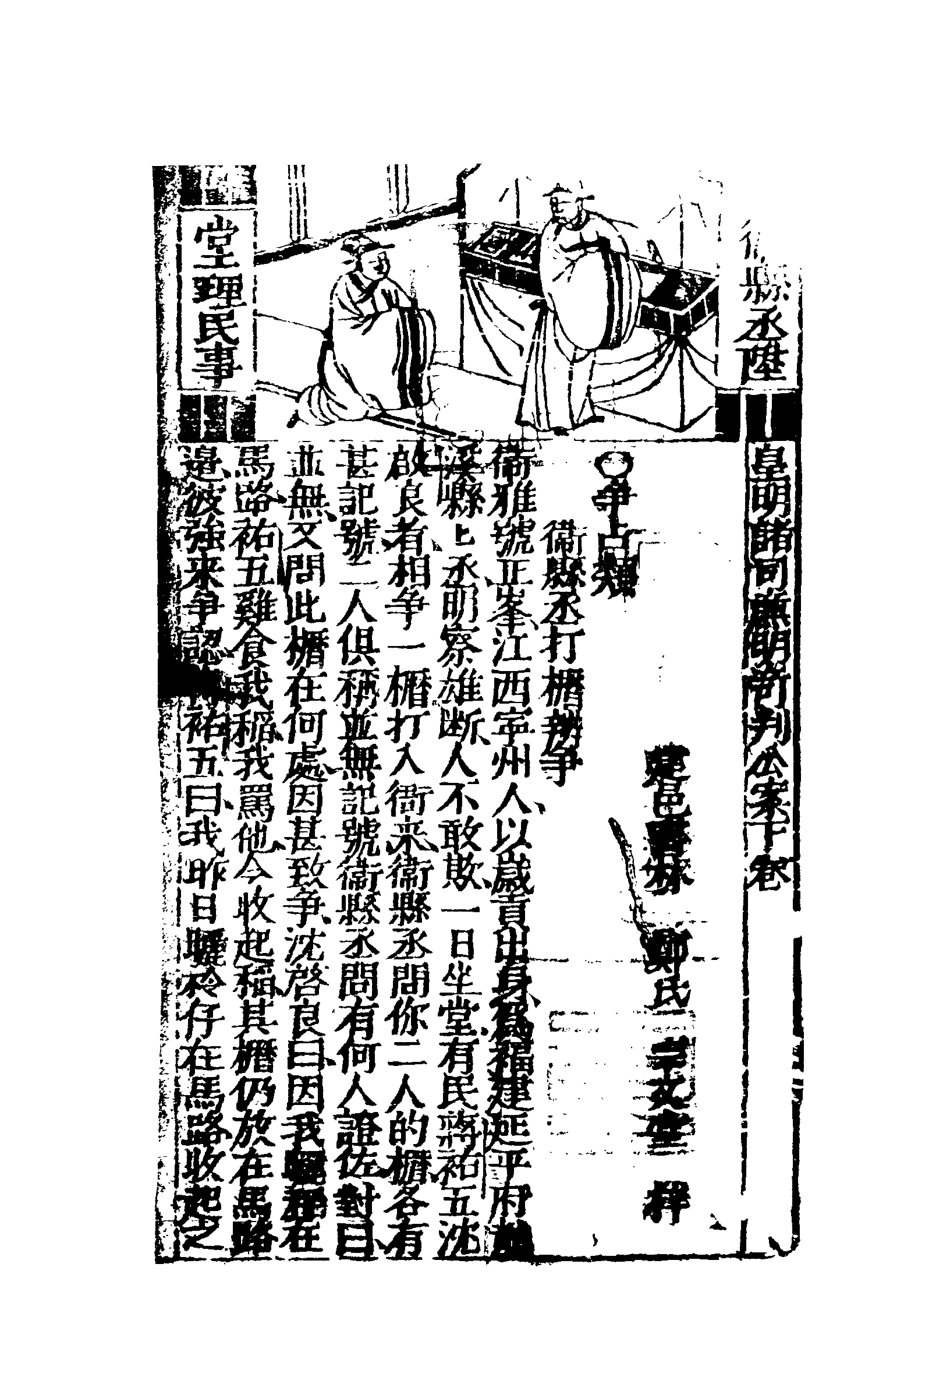 衞縣丞陞
堂理民事
皇明諸司廉明竒判公案下卷
建邑書林　鄭氏　宗文堂　梓
○爭占類
衞縣丞打櫃辨爭
衞雅號正峯、江西寧州人、以歲貢出身、爲福建延平府
溪縣上丞、明察雄断、人不敢欺、一日坐堂、有民蔣祐五沈
啟良者、相爭一櫃、打入衙来、衞縣丞問你二人的櫃、各有
甚記號、二人俱稱並無記號、衞縣丞問有何人證佐、對曰
並無、又問此櫃在何處、因甚致爭、沈啓良曰、因我曬稻在
馬路、祐五雞食我稻、我罵他、今收起稻、其櫃仍放在馬路
邉、彼強来爭認、蔣祐五曰、我昨日曬衿仔在馬路、收起之